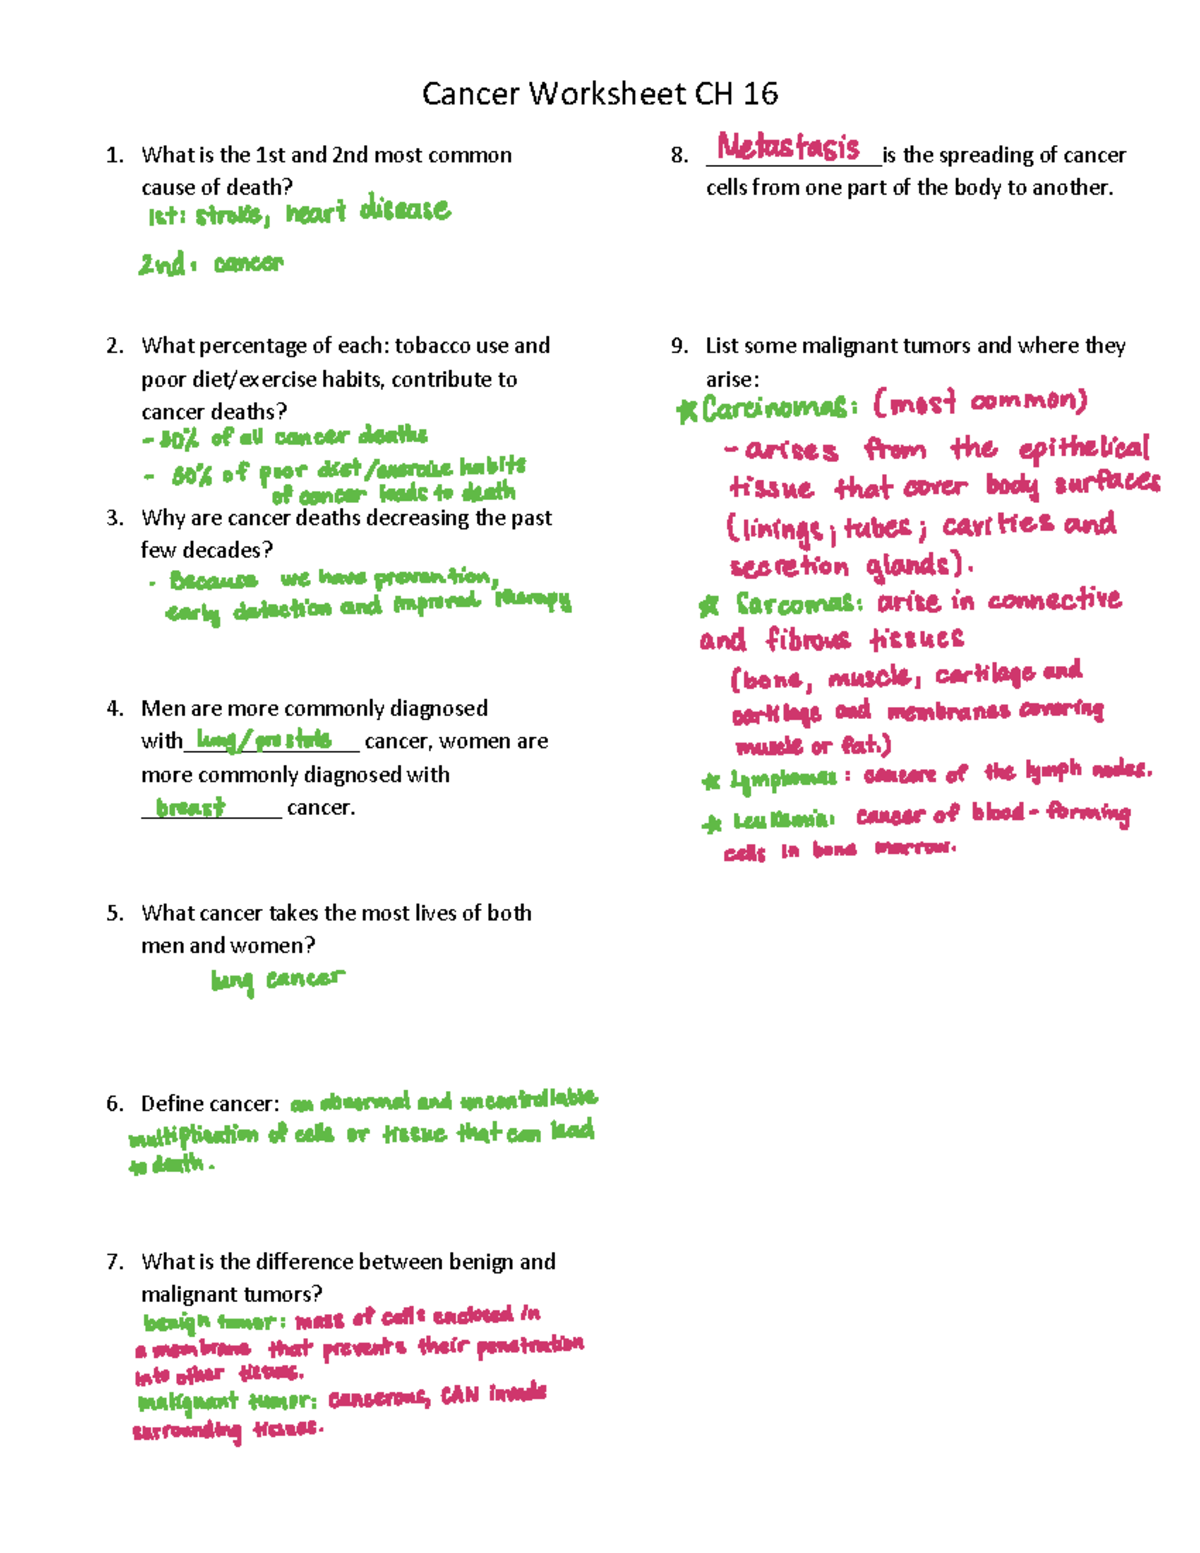 Cancer Worksheet CH 16
1. What is the 1st and 2nd most common
cause of death?
1st: stroke, heart disease
2nd: cancer
2. What percentage of each: tobacco use and
poor diet/exercise habits, contribute to
cancer deaths?
- 30% of all cancer deaths
- 30% of poor diet/exercise habits
of cancer leads to death
3. Why are cancer deaths decreasing the past
few decades?
- Because we have prevention,
early detection and improved therapy
4. Men are more commonly diagnosed
with lung/prostate cancer, women are
more commonly diagnosed with
breast cancer.
5. What cancer takes the most lives of both
men and women?
lung cancer
6. Define cancer: an abnormal and uncontrollable
multiplication of cells or tissue that can lead
to death.
7. What is the difference between benign and
malignant tumors?
benign tumor: mass of cells enclosed in
a membrane that prevents their penetration
into other tissues.
malignant tumor: cancerous, CAN invade
surrounding tissues.
8. Metastasis is the spreading of cancer
cells from one part of the body to another.
9. List some malignant tumors and where they
arise:
* Carcinomas: (most common)
- arises from the epithelical
tissue that cover body surfaces
(linings; tubes; cavities and
secretion glands).
* Sarcomas: arise in connective
and fibrous tissues
(bone, muscle, cartilage and
cartilage and membranes covering
muscle or fat.)
* Lymphomas: cancere of the lymph nodes.
* Leukemia: cancer of blood-forming
cells in bone marrow.